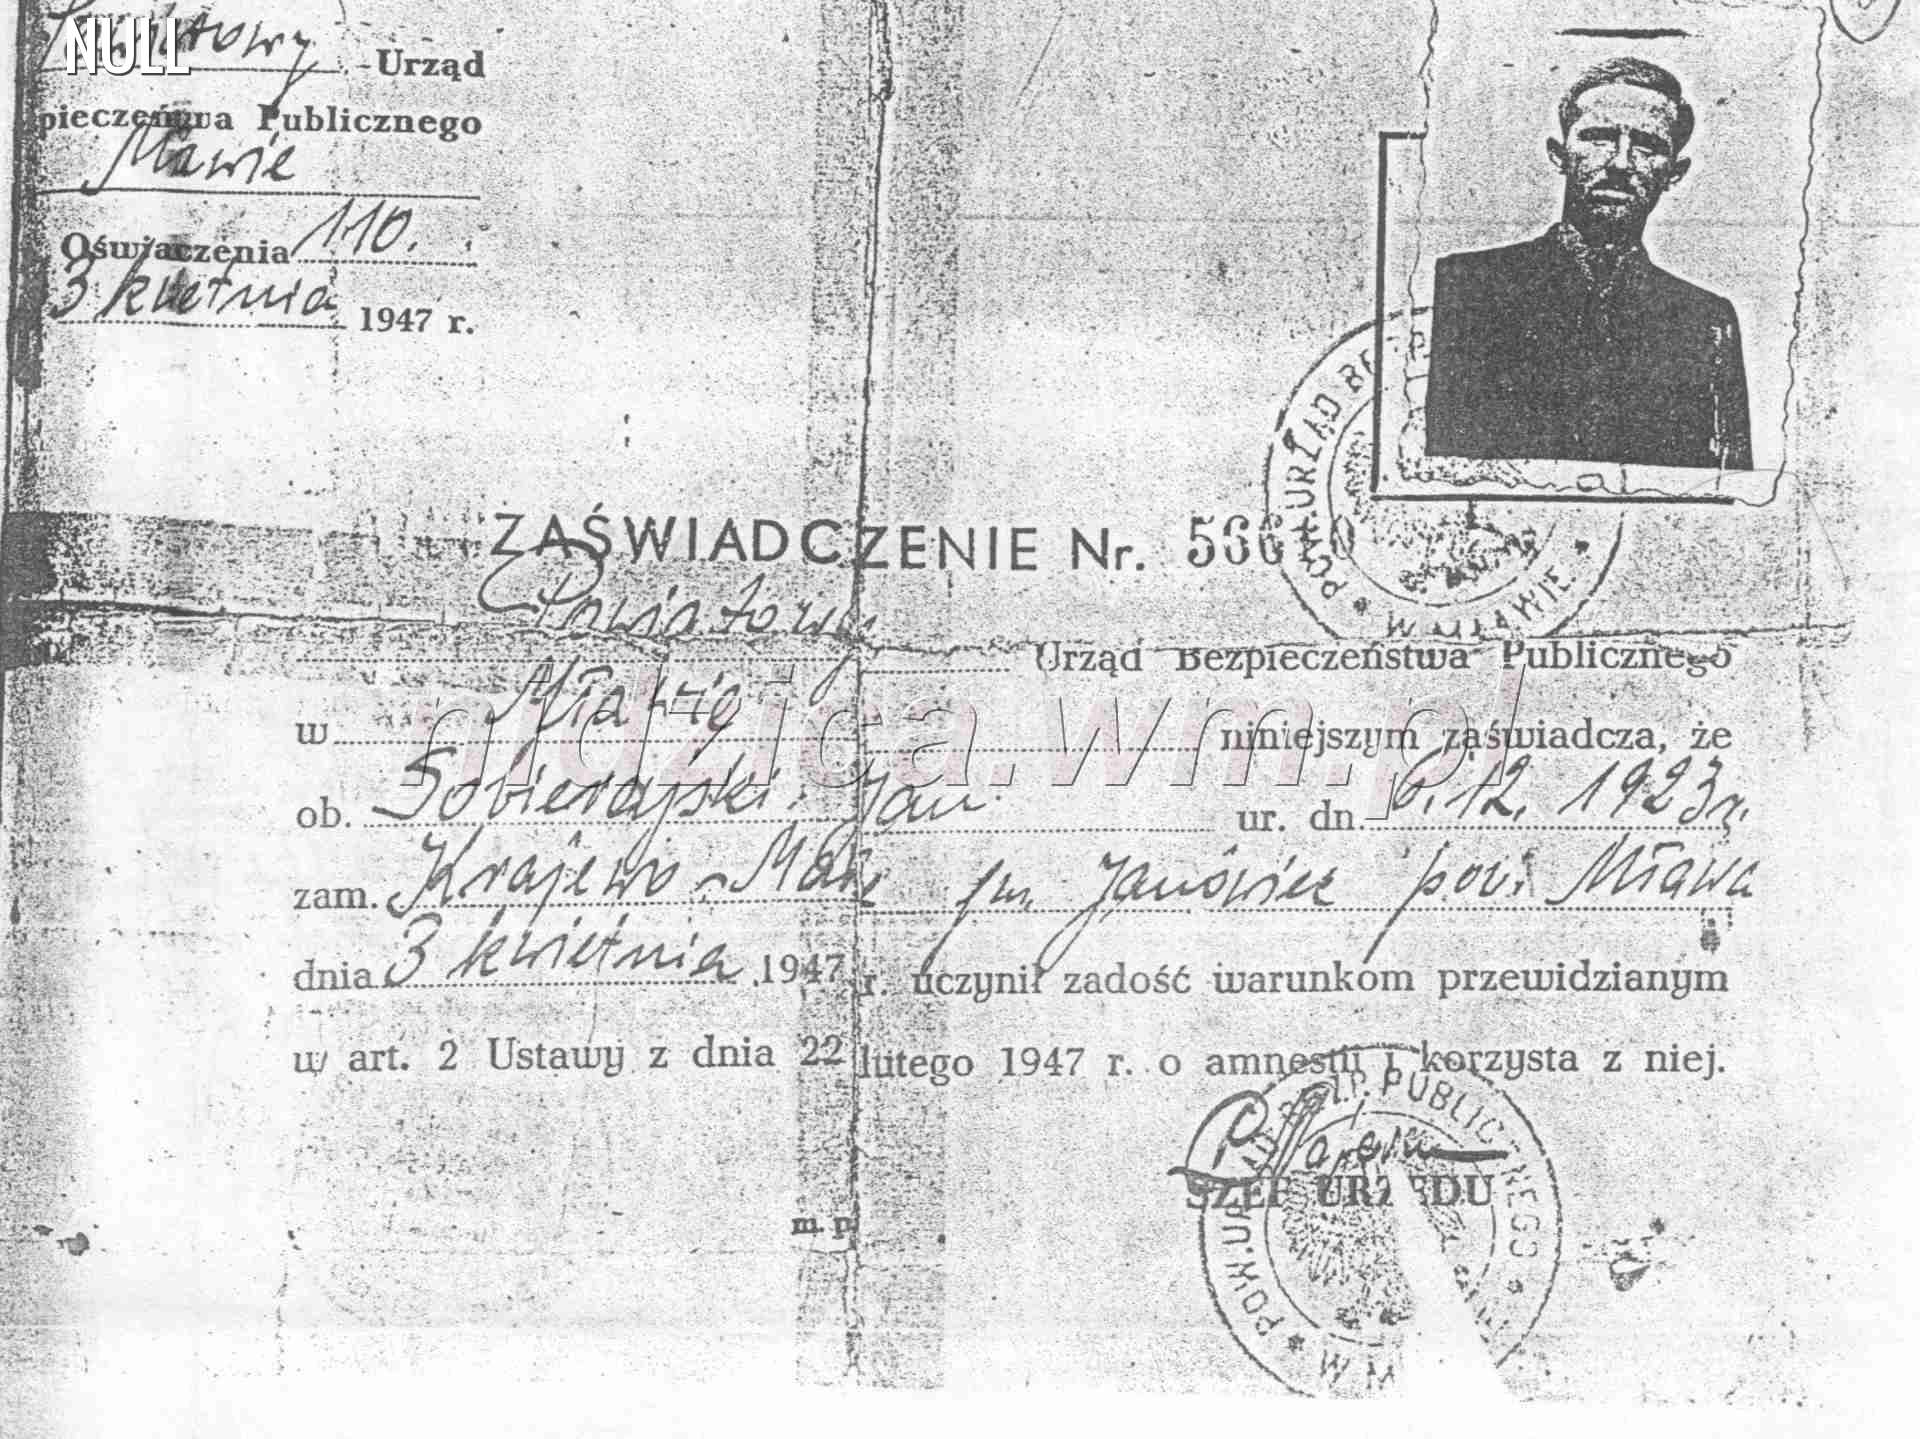 NULL
Powiatowy - Urząd
pieczeństwa Publicznego
Mławie
Oświadczenia 110.
3 kwietnia 1947 r.
ZAŚWIADCZENIE Nr. 566 0
Powiatowy
Urząd Bezpieczeństwa Publicznego
w Mławie niniejszym zaświadcza, że
ob. Sobierajski Jan ur. dn. 6.12.1923 r.
zam. Krajewo - Małe gm. Janowiec pow. Mława
dnia 3 kwietnia 1947 r. uczynił zadość warunkom przewidzianym
w art. 2 Ustawy z dnia 22 lutego 1947 r. o amnestii i korzysta z niej.
m. p.
SZEF URZĘDU
POW. URZĄD BEZP
W MŁAWIE
POW. URZĄD BEZP. PUBLICZNEGO
W M
nidzica.wm.pl